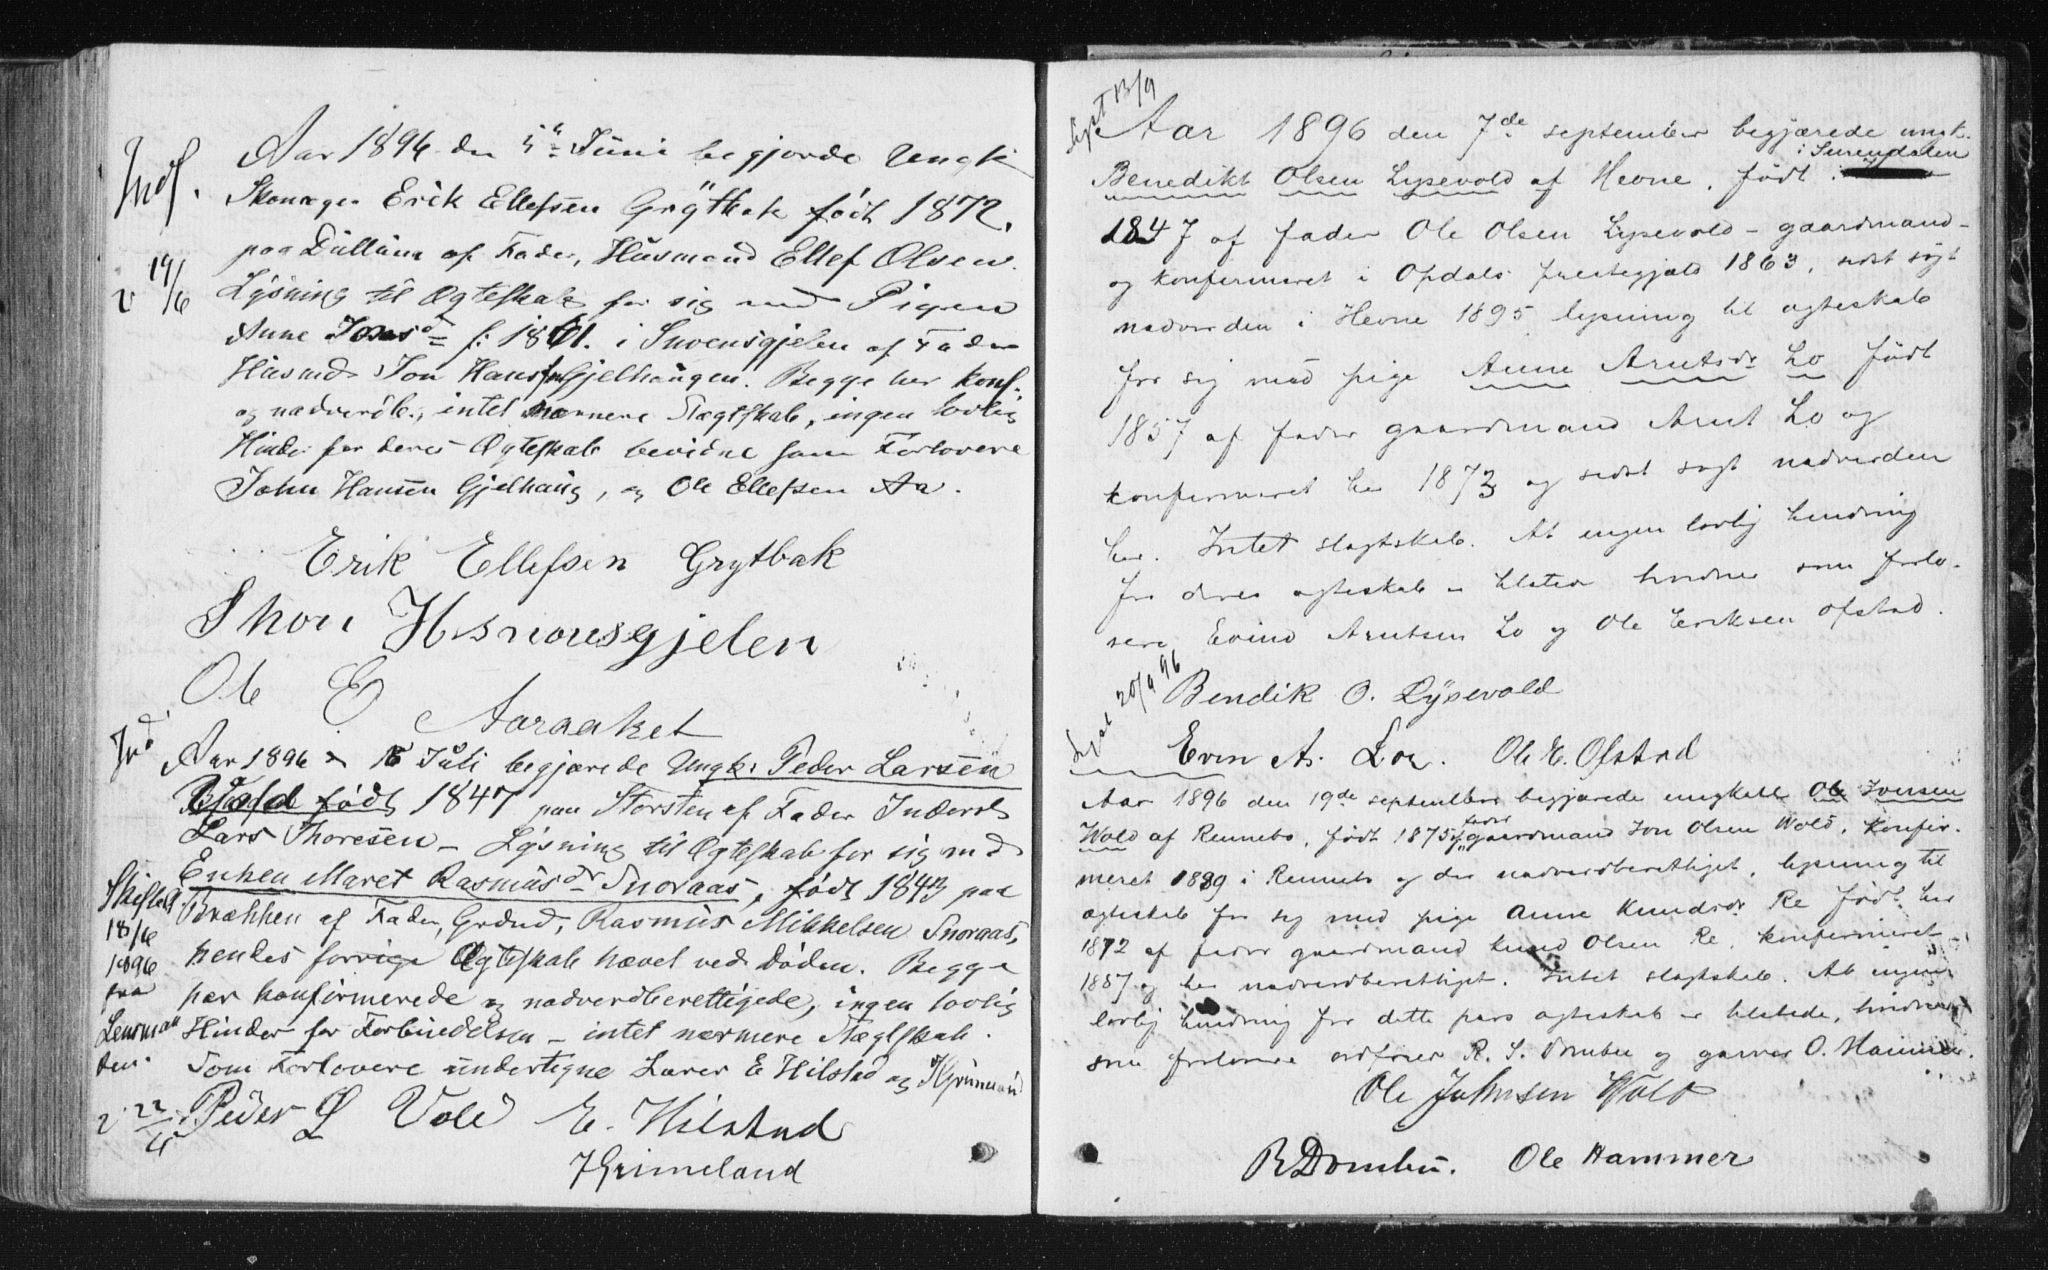 Indf.
19/6
Aar 1896 den 5te Juni begjærde Ungk
Skomager Erik Ellefsen Grÿtbak født 1872,
paa Dullum af Fader, Husmand Ellef Olsen.
Lysning til Ægteskab for sig med Pigen
Anne Jonsd f: 1871. i Snoensgjelen af Fader
Husmd Jon Hansen Gjelhaugen. Begge her konf.
og nadverdb., intet nærmere Slægtskab, ingen lovlig
Hinder for deres Ægteskab bevidne som Forlovere
John Hansen Gjelhaug, og Ole Ellefsen Aa.
Erik Ellefsen Grytbak
Shon H snonsgjelen
Ole E Aaraaket
Ind.
Aar 1896 15 Juli begjærede Ungk: Peder Larsen
Vold født 1847 paa Storsten af Fader Inderst
Lars Thoresen – Lysning til Ægteskab for sig med
Enken Maret Rasmusdr Snoraas, født 1843 paa
Brækken af Fader, Grdmd, Rasmus Mikkelsen Snoraas,
hendes forrige Ægteskab hævet ved Døden. Begge
her konfirmerede og nadverdberettigede, ingen lovlig
Hinder for Forbindelsen – intet nærmere Slægtskab.
Som Forlovere undertegne Lærer E Hilstad og J Grimeland
Skifteat.
18/6
1896
fra
Lensman
den.
22/
Peder L Vold E. Hilstad
J Grimeland
Lyst 13/9
Aar 1896 den 7de september begjærede ungk.
Benedikt Olsen Lysevold af Hevne, født i Surendalen
1847 af fader Ole Olsen Lysevold – gaardmand –
og konfirmeret i Opdals prestegjæld 1863, sidst søgt
nadverden i Hevne 1895 lysning til ægteskab
for sig med pige Anne Arntsdr Lo født
1857 af fader gaardmand Arnt Lo og
konfirmeret her 1873 og sidst søgt nadverden
her. Intet slægtskab. At ingen lovlig hindring
for deres ægteskab er tilstede bevidner som forlo-
vere Evind Arntsen Lo og Ole Eriksen Ofstad.
Lyst 20/9 96
Bendik O. Lÿsevold
Even A. Loe. Ole E. Ofstad
Aar 1896 den 19de september begjærede ungkarl Ole Jonsen
Wold af Rennebo, født 1875 af fader gaardmand Jon Olsen Wold, konfir-
meret 1889 i Rennebo og der nadverdberettiget, lysning til
ægteskab for sig med pige Anne Knudsdr Re født her
1872 af fader gaardmand Knud Olsen Re, konfirmeret
1887 og her nadverdberettiget. Intet slægtskab. At ingen
lovlig hindring for dette pars ægteskab er tilstede, bevidner
som forlovere ordfører R. S. Dombu og garver O. Hammer.
Ole Johnsen Wold
R Dombu. Ole Hammer